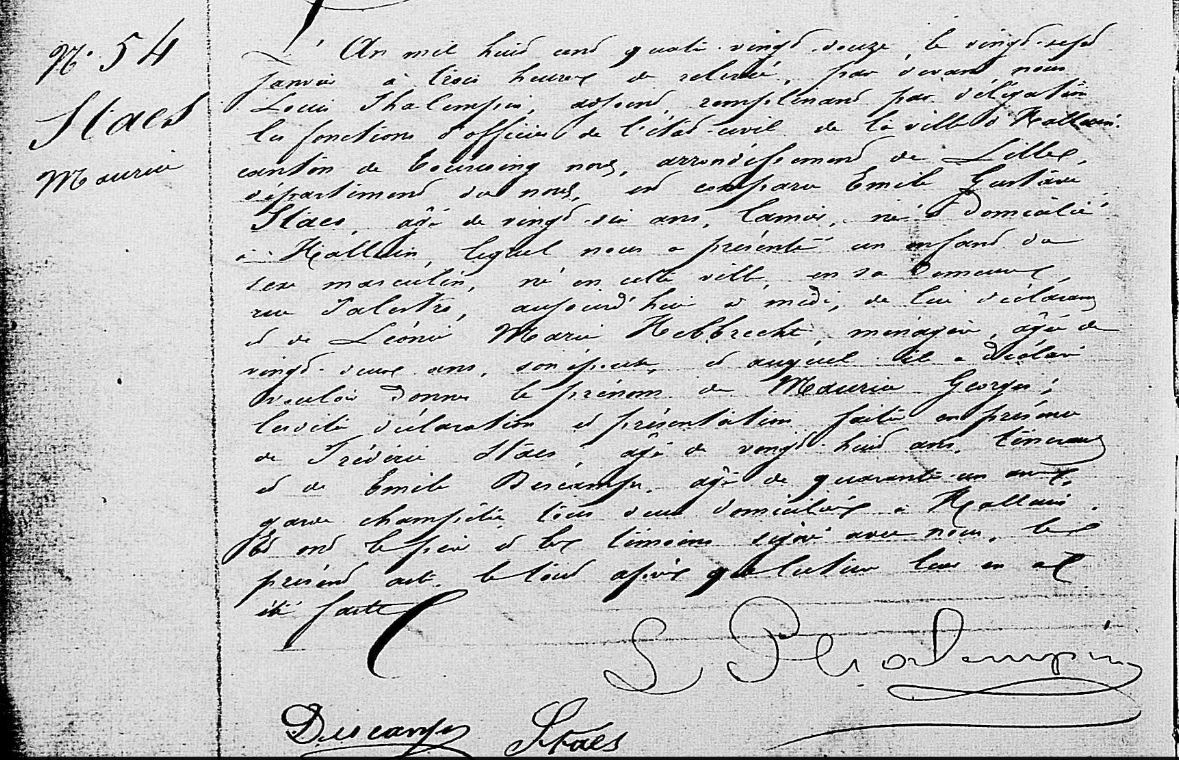 N° 54
Staes
Maurice
L'An mil huit cent quatre vingt douze le vingt-sept
janvier à trois heures de relevée, par devant nous
Louis Phalempin, adjoint, remplissant par délégation
les fonctions d'officier de l'état-civil de la ville d'Halluin,
canton de Tourcoing nord, arrondissement de Lille,
département du nord, est comparu Emile Gustave
Staes, âgé de vingt six ans, lamier, né & domicilié
à Halluin, lequel nous a présenté un enfant du
sexe masculin, né en cette ville, en sa demeure,
rue aujourd'hui à midi, de lui déclarant
et de Léonie Marie Hebbrecht, ménagère, âgée de
vingt deux ans, son épouse, et auquel il a déclaré
vouloir donner le prénom de Maurice Georges;
lesdites déclaration et présentation faites en présence
de Frédéric Staes, âgé de vingt huit ans,
et de Emile Descamps, âgé de quarante un ans,
garde champêtre, tous deux domiciliés à Halluin.
Et ont le père et les témoins signé avec nous, le
présent acte, le tout après que lecture leur en a
été faite
L Phalempin
Descamps Staes